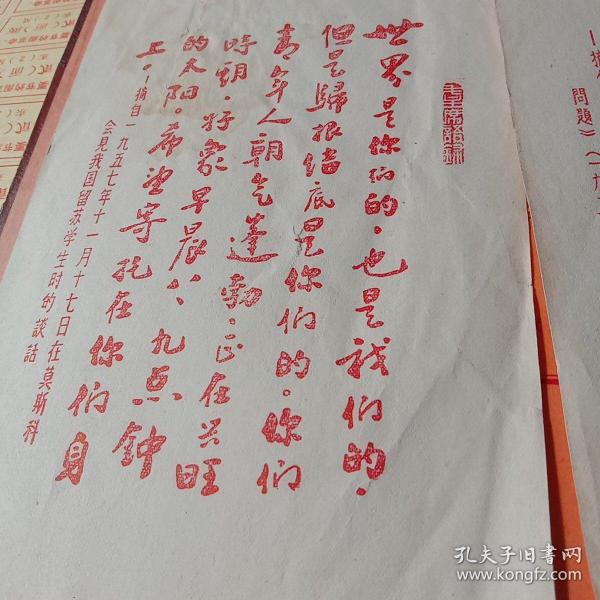 毛主席語録
世界是你们的，也是我们的，
但是歸根结底是你们的。你们
青年人朝气蓬勃，正在兴旺
時期，好象早晨八、九点钟
的太阳。希望寄托在你们身
上。
—摘自一九五七年十一月十七日在莫斯科
会見我国留苏学生时的談話
問題》
孔夫子旧書网
www.kongfz.com